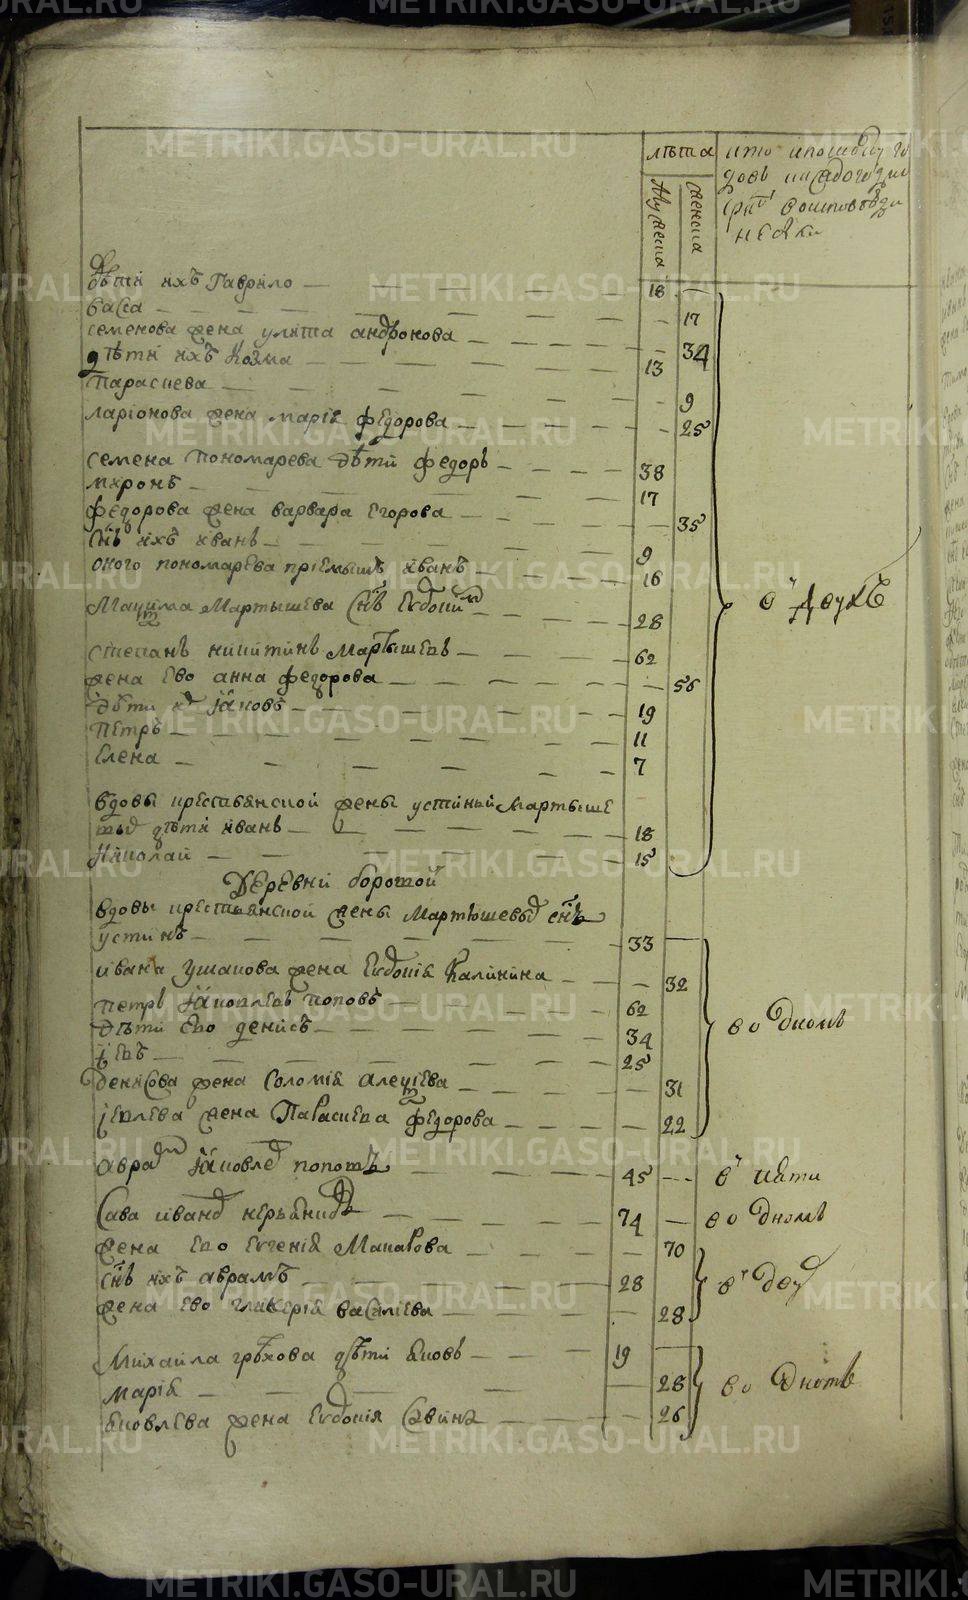 METRIKI.GASO-URAL.RU
лѣта
мужеска
женска
кто и
дѣти ихъ Гаврило — 18
васса — 17
семенова жена улита андронова — 34
дѣти ихъ козма — 13
Параскева — 9
ларіонова жена маріѧ федорова — 25
семена пономарева дѣти федоръ — 38
миронъ — 17
федорова жена варвара егорова — 35
снъ ихъ иванъ — 9
оного пономарева пріемышъ иванъ — 16
Мартышева снъ Евдоким — 28
степанъ никитинъ мартышевъ — 62
жена ево анна федорова — 56
дѣти их іаковъ — 19
петръ — 11
елена — 7
в двухъ
вдовы крестьянской жены устиньи мартыше
вых дѣти иванъ — 18
николай — 15
Деревни боровой
вдовы крестьянской жены мартюшевых снъ
устинъ — 33
ивана ушакова жена Евдокіѧ Калинина — 32
петръ іаковлевъ поповъ — 62
дѣти ево денисъ — 34
іевъ — 25
во дномъ
денисова жена Соломіѧ алексіева — 31
іевлева жена Параскева федорова — 22
авра іаковле поповъ — 45 — в пѧти
Сава иванов — 74 — во дномъ
жена ево евгеніѧ Макарова — 70
снъ ихъ аврамъ — 28
в дву
жена ево гликеріѧ василіева — 28
михайла грѣхова дѣти ѧковъ — 19
маріѧ — 28
во дномъ
ѧковлева жена Евдокіѧ Савина — 26